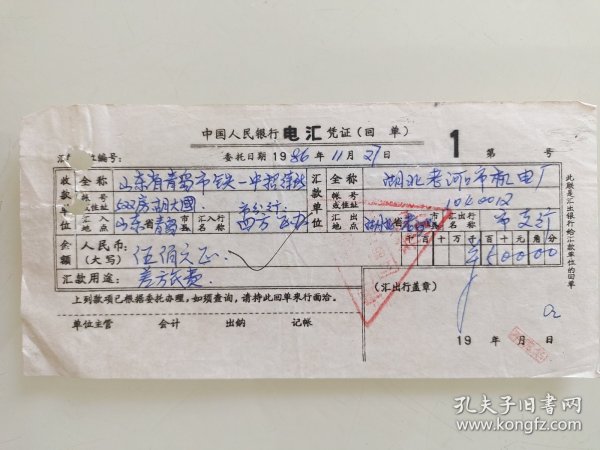 中国人民银行电汇凭证(回 单) 1 第 号
编号: 委托日期 1986 年 11 月 27 日
收款单位 全称 山东省青岛市铁一中招待所
帐号或住址 502房胡大國
汇入地点 山东省青岛市县 汇入行名称 四方区办
金额 人民币:(大写) 伍佰元正
汇款用途: 差方旅费
汇款单位 全称 湖北老河口市机电厂
帐号或住址 1040012
汇出地点 湖北省 市县 汇出行名称 市支行
千百十万千百十元角分
¥50000
上列款项已根据委托办理,如须查询,请持此回单来行面洽。
单位主管 会计 出纳 记帐
(汇出行盖章)
19 年 月 日
此联是汇出银行给汇款单位的回单
孔夫子旧书网
www.kongfz.com